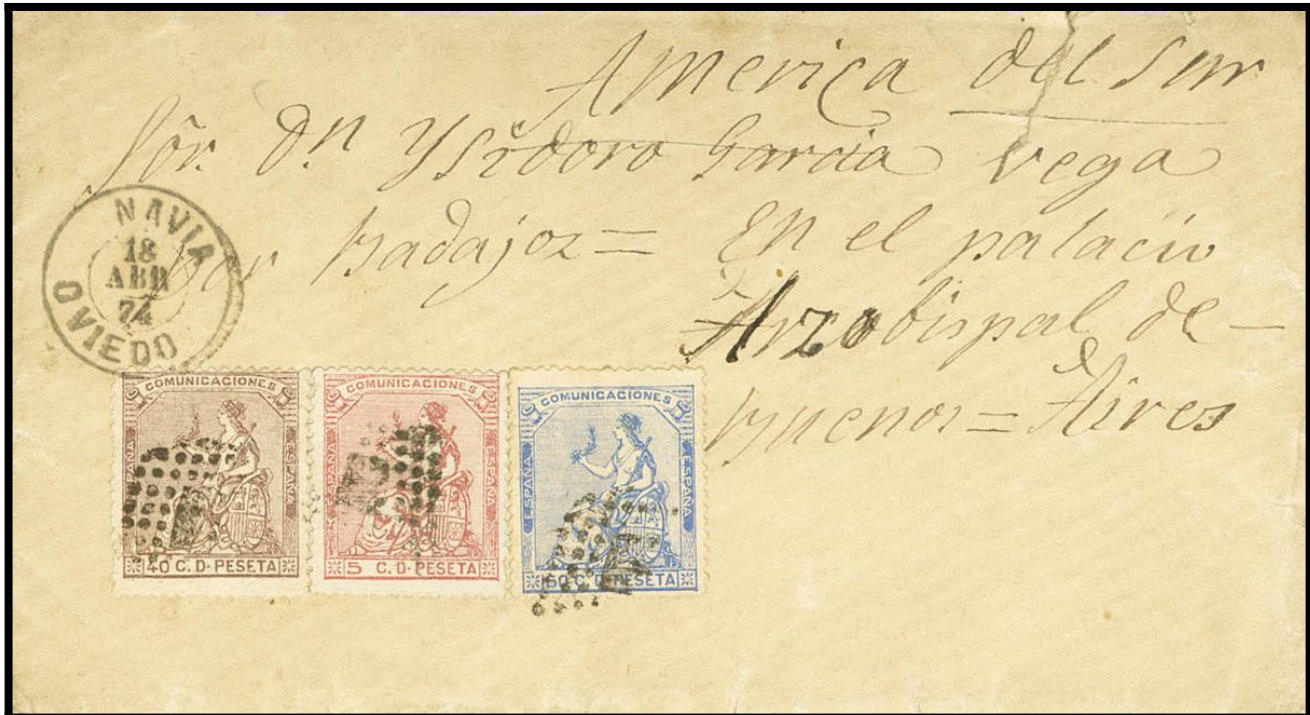 America del Sur
Sōr. Dn Ysidoro Garcia Vega
por Badajoz = En el palacio
Arzobispal de —
Buenos = Aires
NAVIA
18
ABR
74
OVIEDO
COMUNICACIONES
ESPAÑA
ESPAÑA
40 C. D. PESETA
COMUNICACIONES
ESPAÑA
ESPAÑA
5 C. D. PESETA
COMUNICACIONES
ESPAÑA
ESPAÑA
50 C. D. PESETA